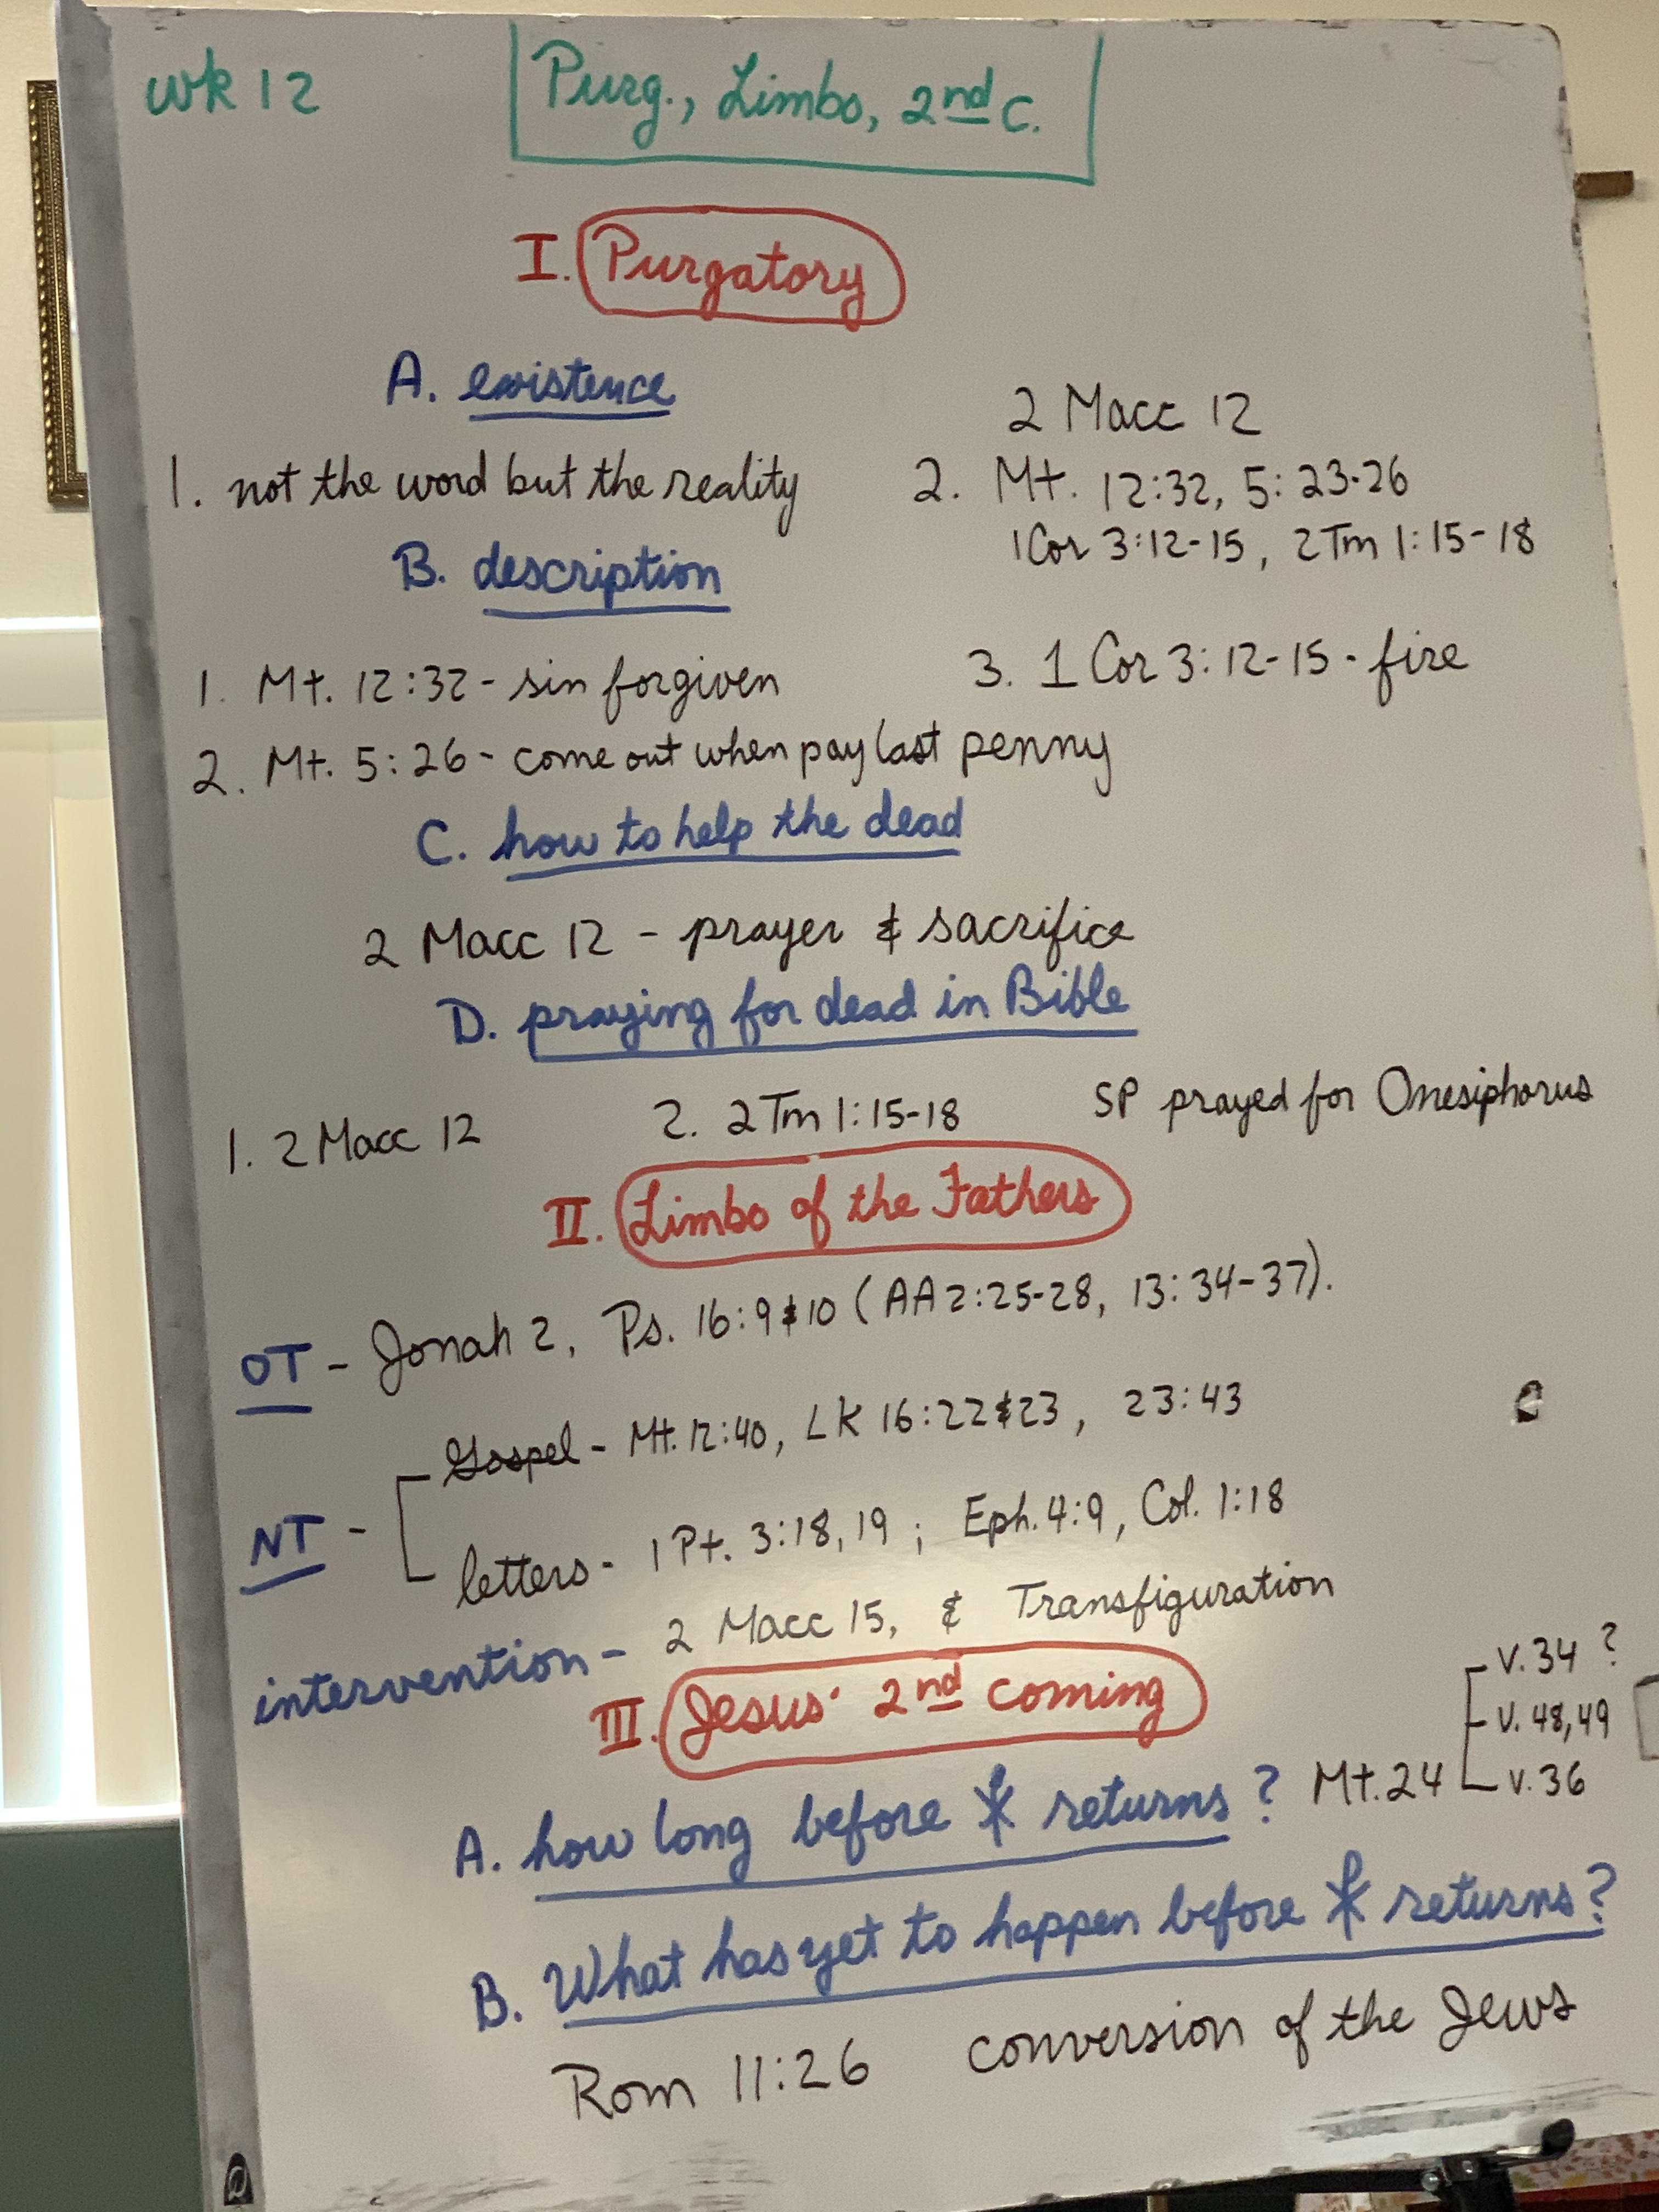 wk 12
Purg., Limbo, 2nd C.
I. Purgatory
A. existence
1. not the word but the reality
2 Macc 12
2. Mt. 12:32, 5:23-26
1 Cor 3:12-15, 2 Tm 1:15-18
B. description
1. Mt. 12:32 - sin forgiven
3. 1 Cor 3:12-15 - fire
2. Mt. 5:26 - come out when pay last penny
C. how to help the dead
2 Macc 12 - prayer & sacrifice
D. praying for dead in Bible
1. 2 Macc 12
2. 2 Tm 1:15-18
SP prayed for Onesiphorus
II. Limbo of the Fathers
OT - Jonah 2, Ps. 16:9&10 (AA 2:25-28, 13:34-37).
NT -
Gospel - Mt. 12:40, LK 16:22&23, 23:43
letters - 1 Pt. 3:18,19; Eph. 4:9, Col. 1:18
intervention - 2 Macc 15, & Transfiguration
III. Jesus' 2nd coming
A. how long before returns? Mt. 24
v. 34 ?
v. 48,49
v. 36
B. What has yet to happen before returns?
Rom 11:26 conversion of the Jews